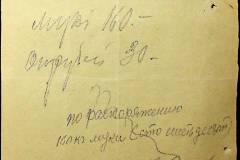 Муки 160.-
Отрубей 30.-
по распоряжению
160 кг муки (сто шестьдесят)